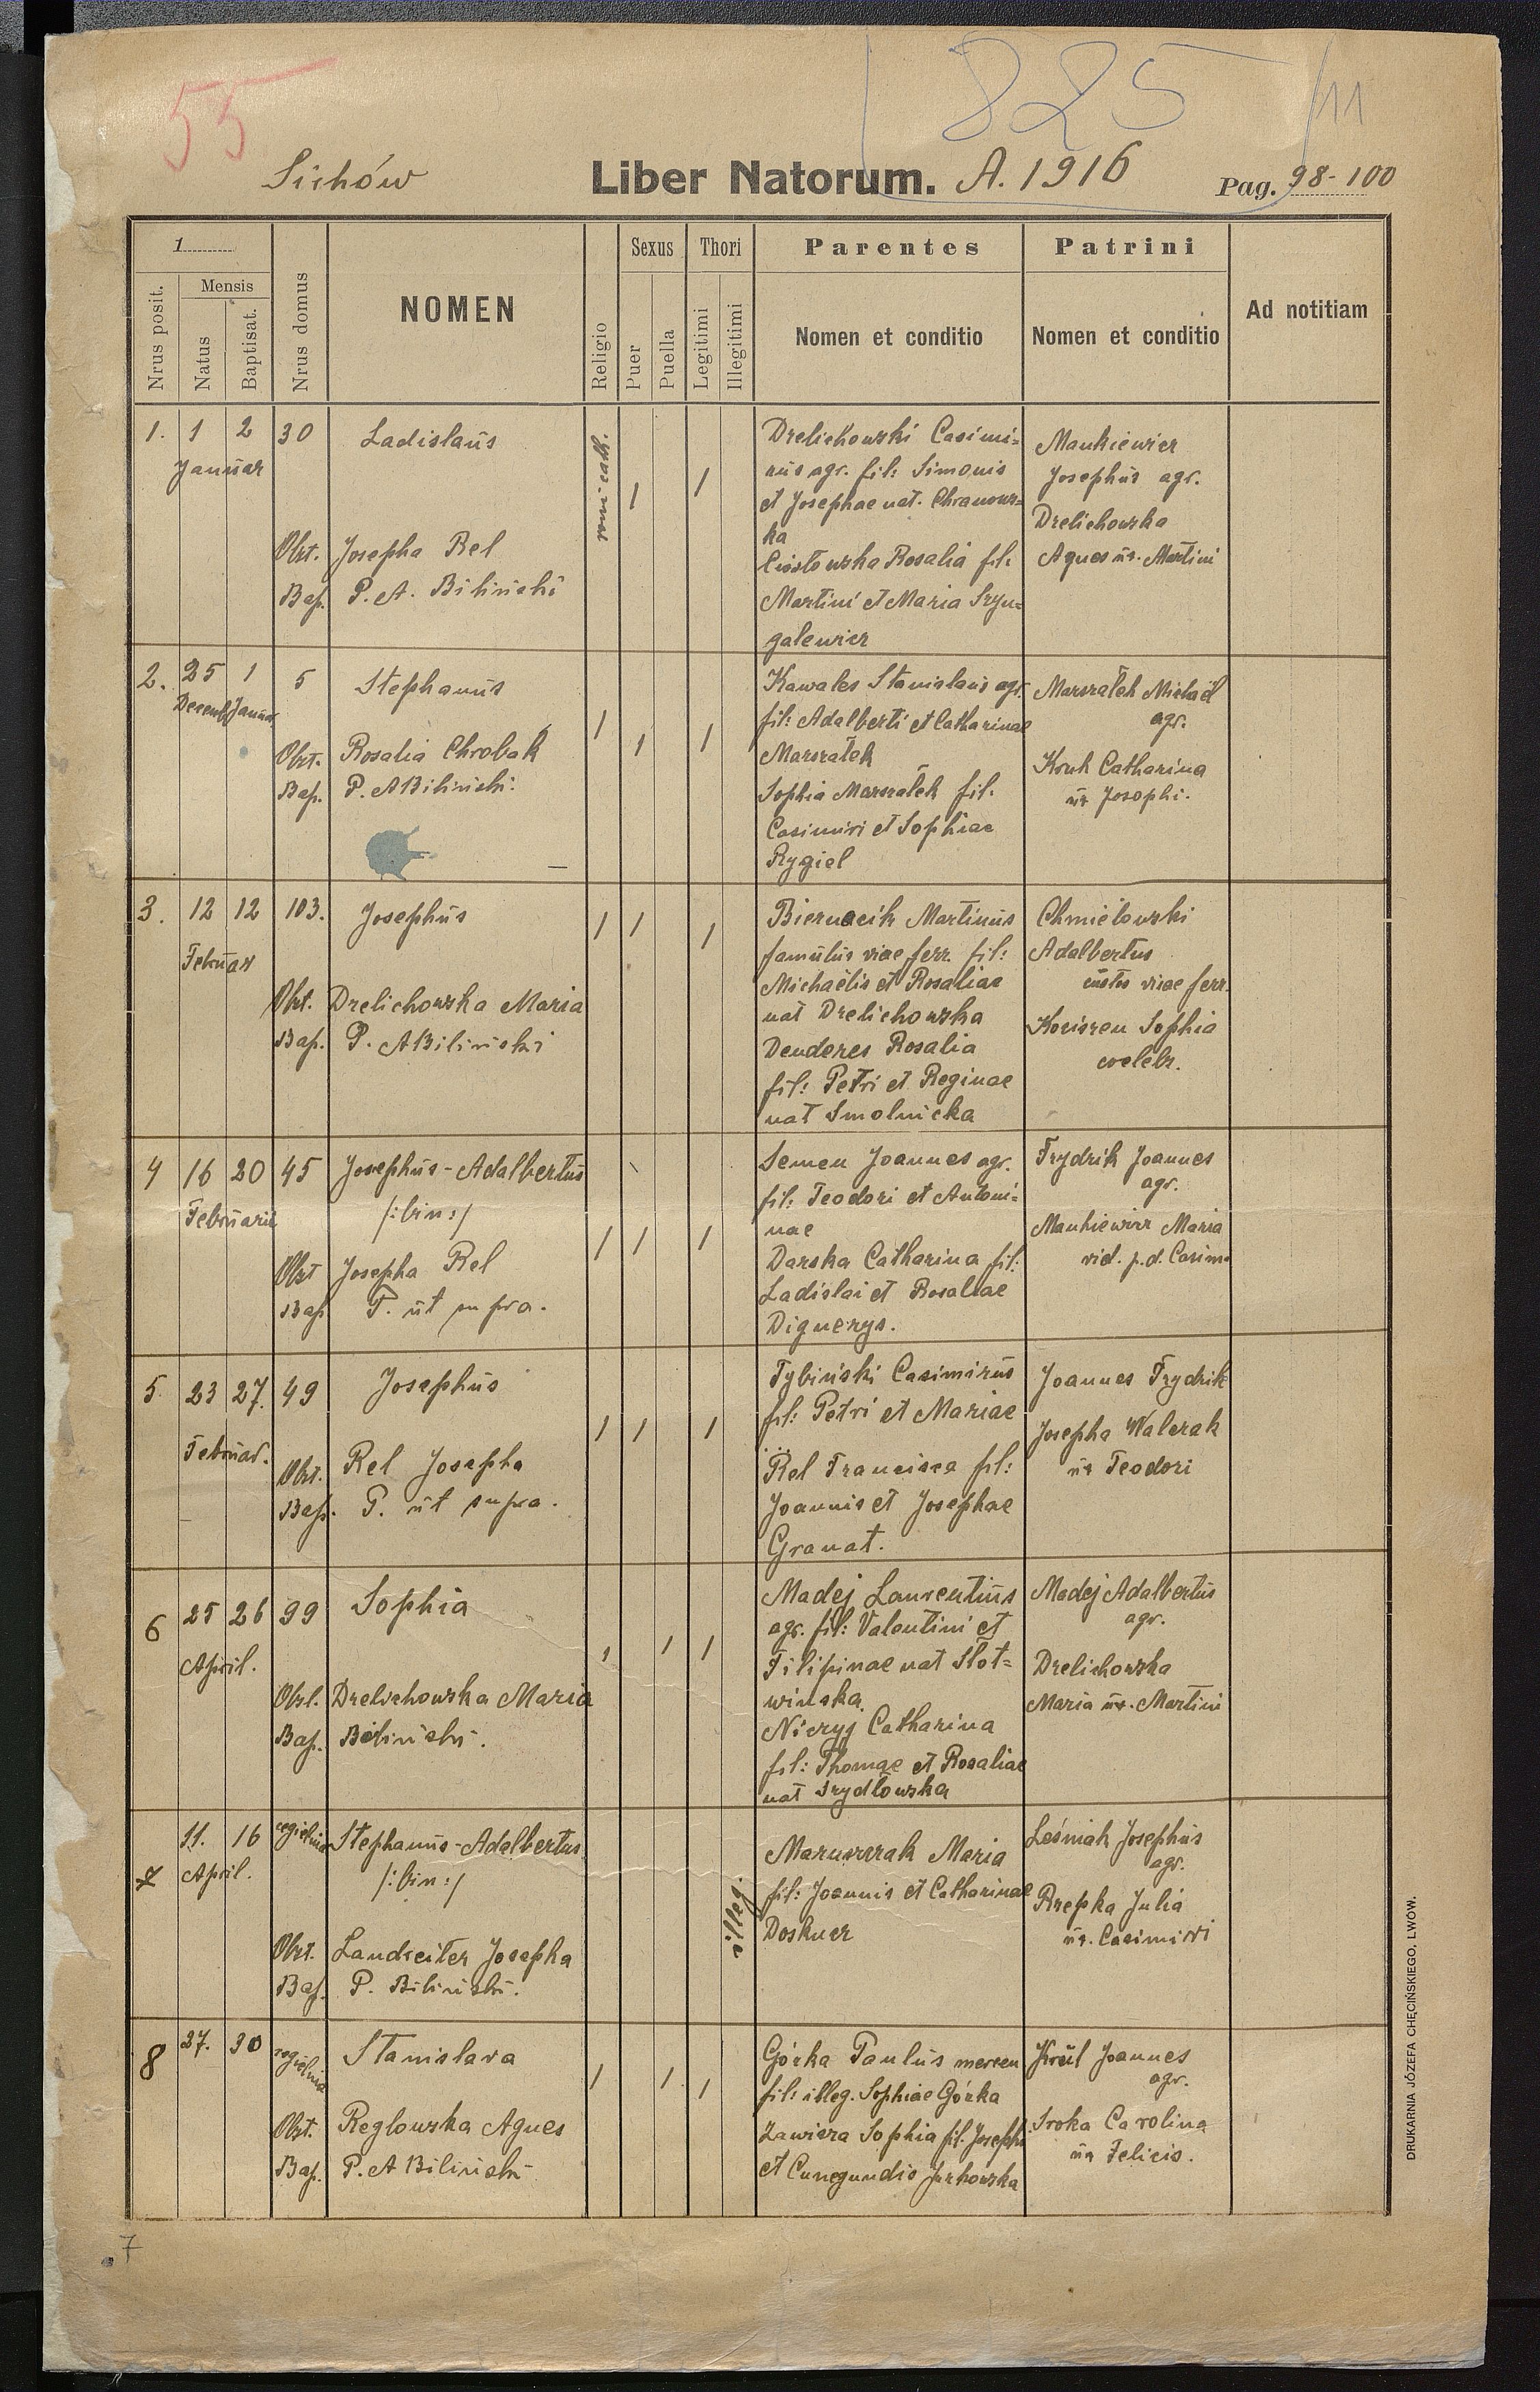 55
825/11
Sichów
Liber Natorum. A. 1916
Pag. 98-100
1
Nrus posit.
Mensis
Natus
Baptisat.
Nrus domus
NOMEN
Religio
Sexus
Puer
Puella
Thori
Legitimi
Illegitimi
Parentes
Nomen et conditio
Patrini
Nomen et conditio
Ad notitiam
1. 1 2 30 Ladislaus
Januar
Obst. Josepha Rel
Bap. P. A. Biliński
rom. cath.
1 1
Drelichowski Casimi=
rus agr. fil: Simonis
et Josephae nat. Chranows=
ka
Rosalia fil:
Martini et Maria Szyn=
galewicz
Mankiewicz
Josephus agr.
Drelichowska
Agnes ux. Martini
2. 25 1 5 Stephanus
Decemb. Januar
Obst. Rosalia Chrobak
Bap. P. A Biliński.
1 1 1
Kawales Stanislaus agr.
fil: Adalberti et Catharinae
Marszałek
Sophia Marszałek fil.
Casimiri et Sophiae
Rygiel
Marszałek Michaël
agr.
Kruk Catharina
ux Josephi.
3. 12 12 103. Josephus
Februar
Obst. Drelichowska Maria
Bap. P. A Biliński
1 1 1
Biernacik Martinus
famulus viae ferr. fil:
Michaëlis et Rosaliae
nat Drelichowska
Denderes Rosalia
fil: Petri et Reginae
nat Smolnicka
Chmielowski
Adalbertus
custos viae ferr.
Sophia
coelebs.
4 16 20 45 Josephus-Adalbertus
Februarii
/:bin:/
Obst Josepha Rel
Bap P. ut supra.
1 1 1
Semen Joannes agr.
fil: Teodori et Antoni=
nae
Darska Catharina fil:
Ladislai et Rosaliae
Diguerys.
Frydrik Joannes
agr.
Mankiewicz Maria
vid. p.d. Casim.
5. 23 27. 49 Josephus
Februar.
Obst. Rel Josepha
Bap. P. ut supra.
1 1 1
Tybiński Casimirus
fil: Petri et Mariae
Rel Francisca fil:
Joannis et Josephae
Granat.
Joannes Frydrik
Josepha Walczak
ux Teodori
6 25 26 99 Sophia
April.
Obst. Drelichowska Maria
Bap. Biliński.
1 1 1
Madej Laurentius
agr. fil: Valentini et
Filipinae nat Słot=
winska
Niczyj Catharina
fil: Thomae et Rosaliae
nat Szydłowska
Madej Adalbertus
agr.
Drelichowska
Maria ux. Martini
7 11. 16 cegielnia Stephanus-Adalbertus
April.
/:bin:/
Obst. Landreiter Josepha
Bap. P. Biliński.
illeg.
Maruszczak Maria
fil: Joannis et Catharinae
Doskucz
Leśniak Josephus
agr.
Rzepka Julia
ux. Casimiri
8 27. 30 cegielnia Stanislava
Obst. Reglowska Agnes
Bap. P. A Biliński
1 1 1
Górka Paulus mercen
fil: illeg. Sophiae Górka
Zawisza Sophia fil. Josephi
et Cunegundis Jurkowska
Król Joannes
agr.
Sroka Carolina
ux Felicis.
7
DRUKARNIA JÓZEFA CHĘCIŃSKIEGO, LWÓW.